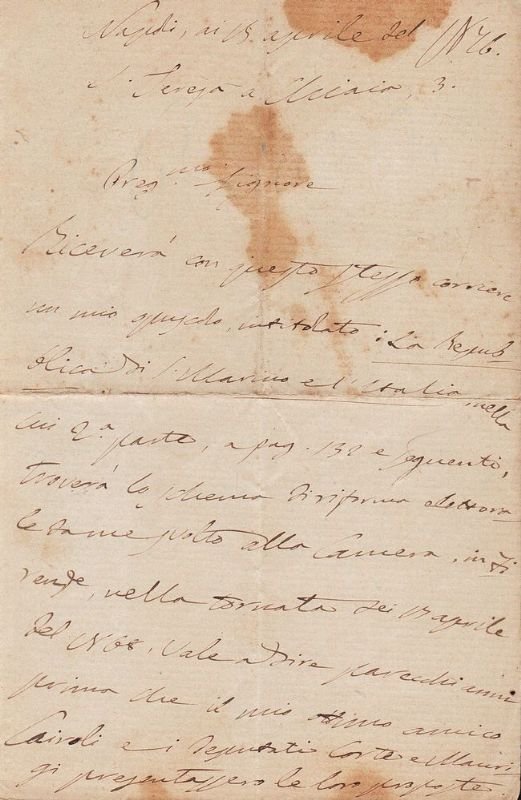 Napoli, ai 18 aprile del 1876.
S. Teresa a Chiaia, 3.
Preg.mo Signore
Riceverà con questo stesso corriere
un mio opuscolo, intitolato: La Repub
blica di S. Marino e l'Italia nella
cui 2.a parte, a pag. 132 e seguenti,
troverà lo schema di riforma elettora
le da me svolto alla Camera, in Fi
renze, nella tornata dei 18 aprile
del 1868. Vale a dire parecchi anni
prima che il mio ottimo amico
Cairoli e i deputati Corte e Mauri
gi presentassero le loro proposte